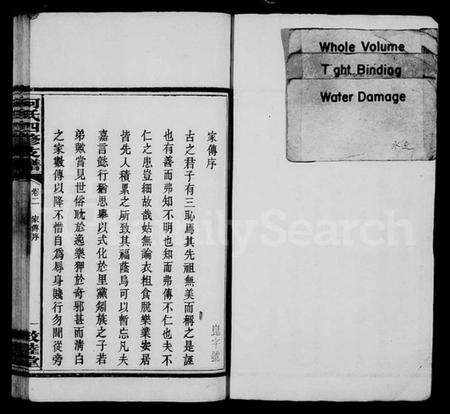 家傳序
古之君子有三恥焉其先祖無美而稱之是誣
也有善而弗知不明也知而弗傳不仁也夫不
仁之患豈細故哉姑無論衣租食脫樂業安居
皆先人積累之所致其福蔭焉可以暫忘凡夫
嘉言懿行猶思畢以式化於里黨頒族之子若
弟歟嘗見世俗耽於逸樂狎於奇邪甚而清白
之家數傳以降不惜自為辱身賤行勿聞從旁
何氏四修支譜
卷二
家傳序
一
敦睦堂
崑字號
Whole Volume
Tight Binding
Water Damage
水支
FamilySearch